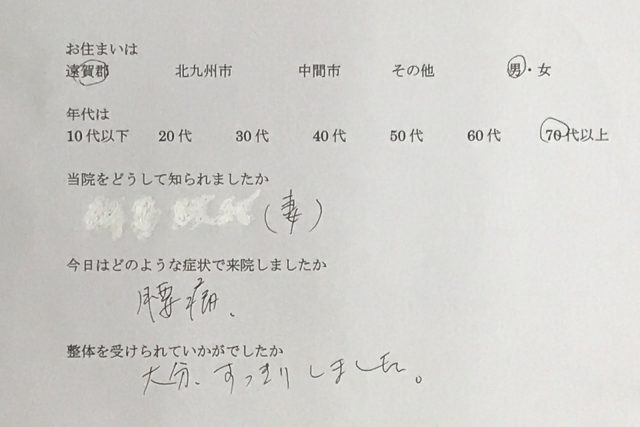 お住まいは
遠賀郡 北九州市 中間市 その他 男・女
年代は
10代以下 20代 30代 40代 50代 60代 70代以上
当院をどうして知られましたか
(妻)
今日はどのような症状で来院しましたか
腰痛、
整体を受けられていかがでしたか
大分、すっきりしました。